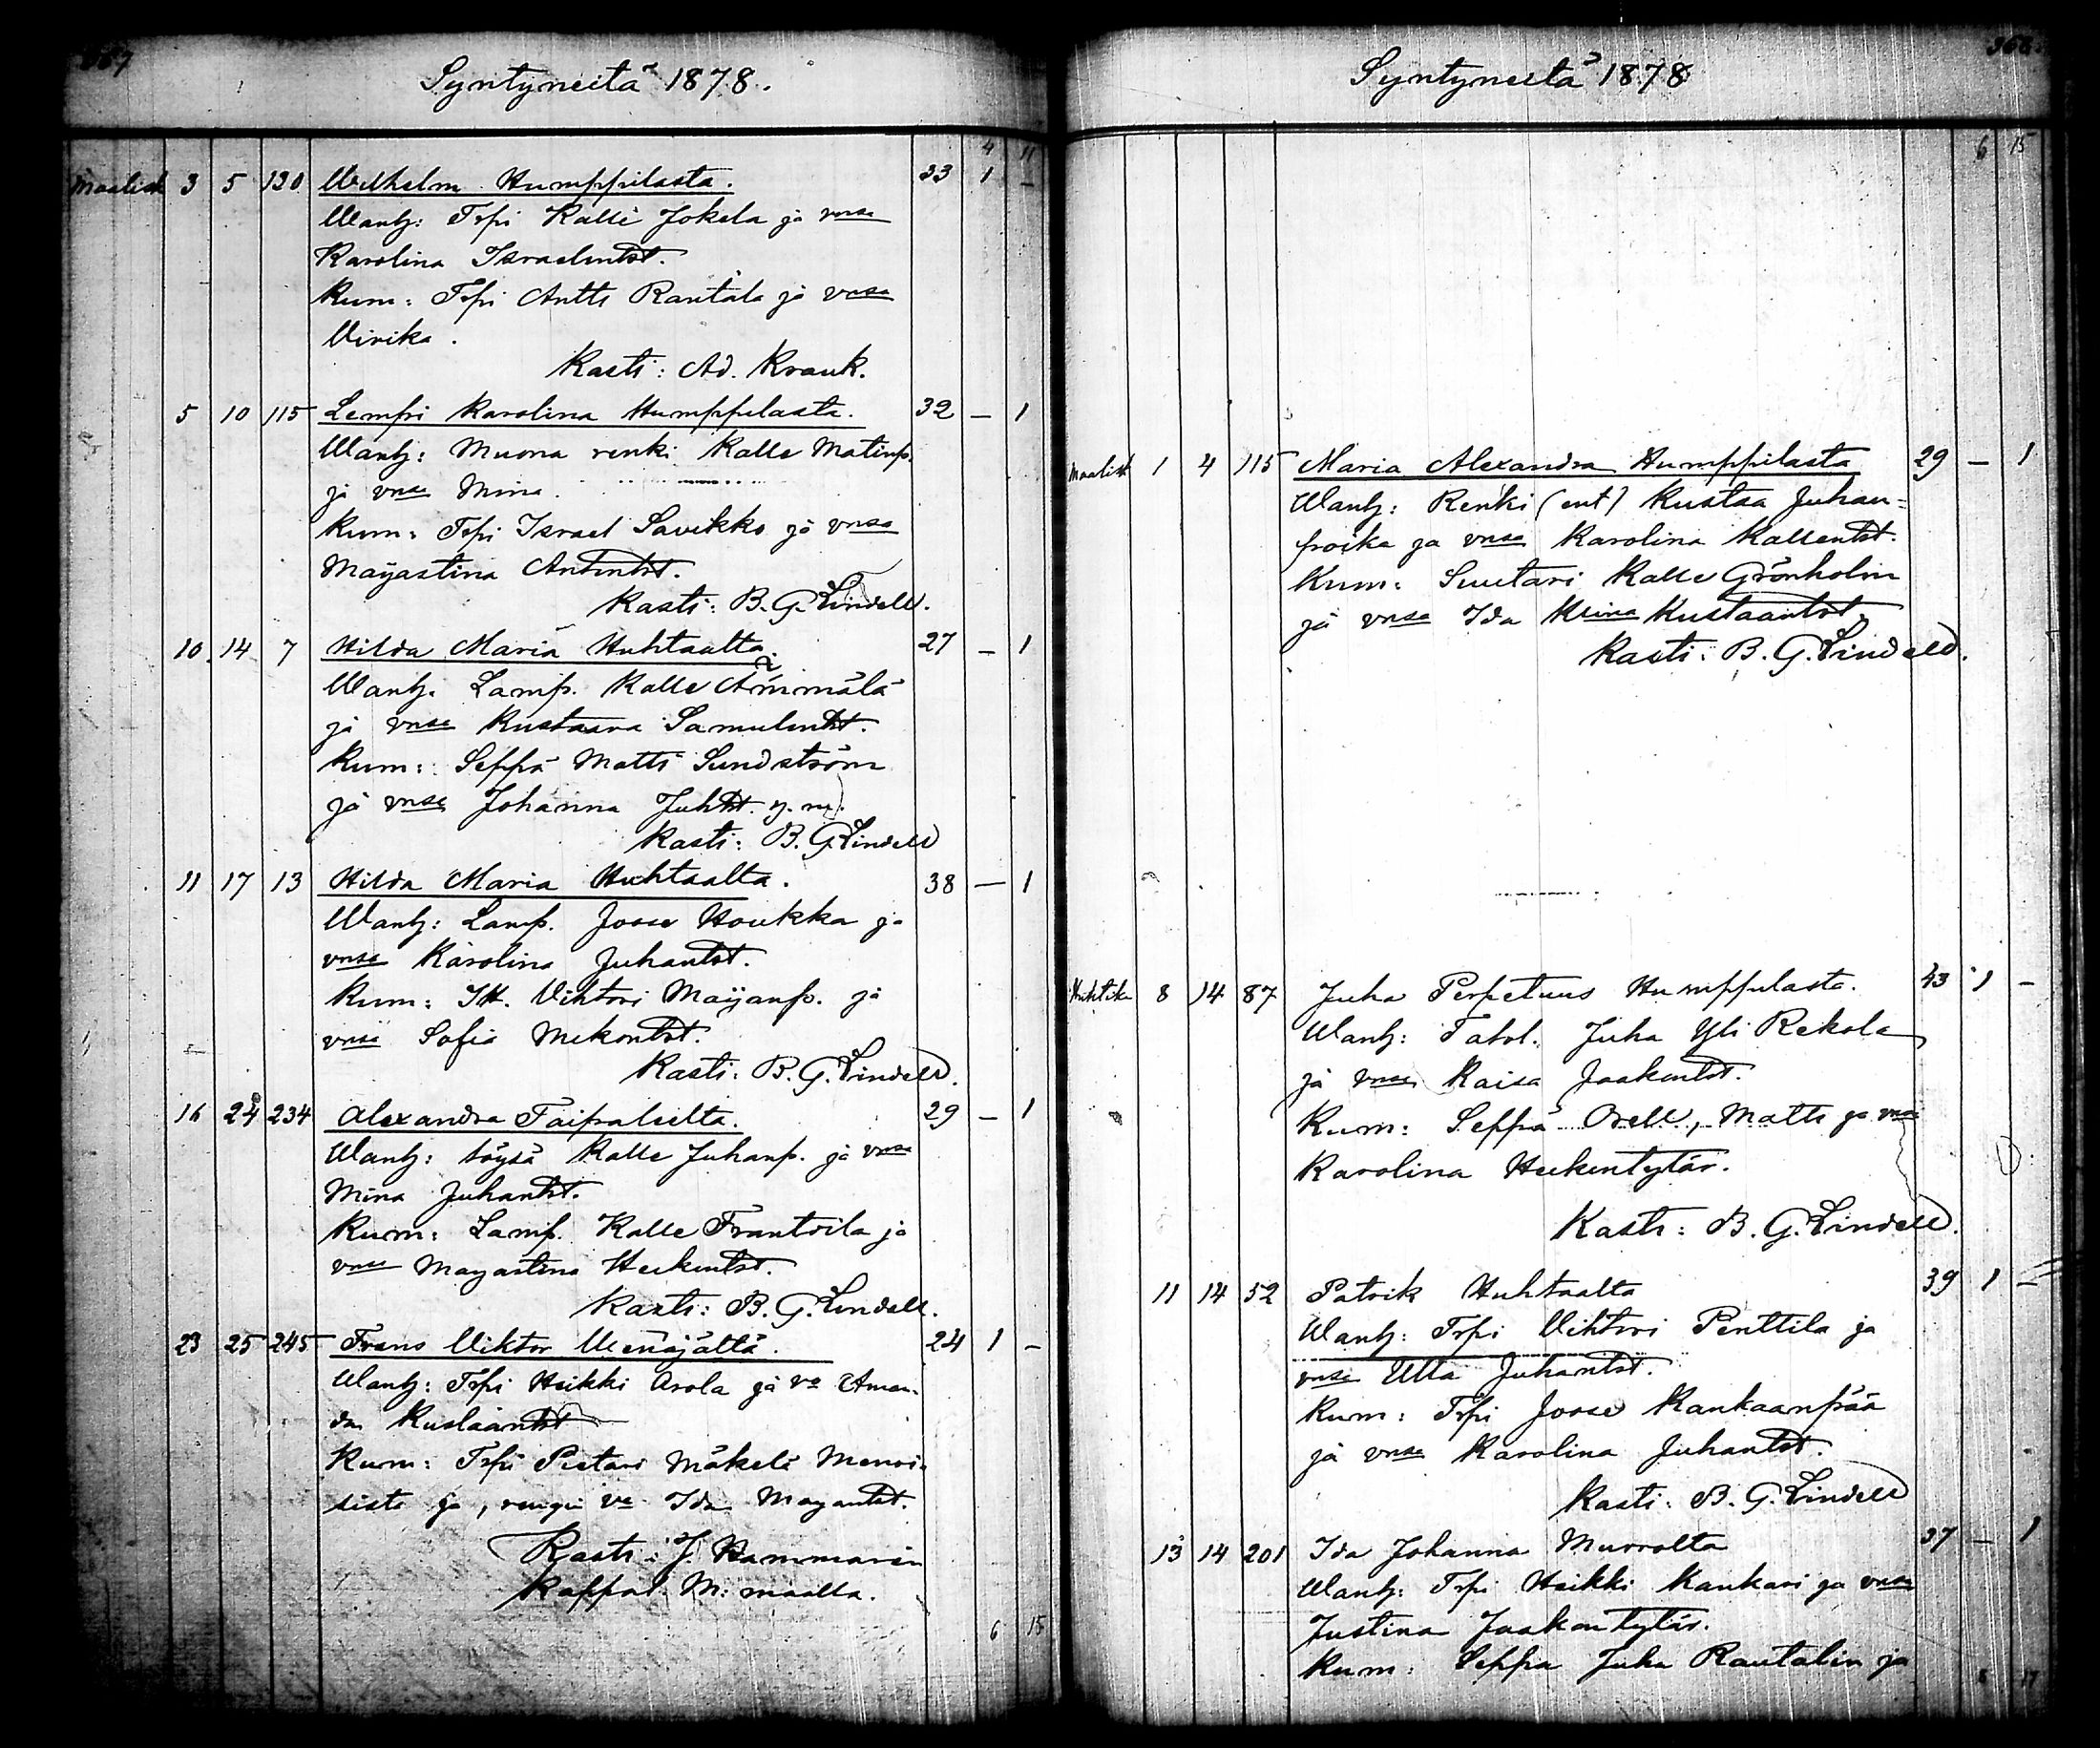 Syntyneitä 1878.
4 11
Maalisk 3 5 130 Wilhelm Humppilasta. 33 1 –
Wanh: Trpi Kalle Jokela ja vmsa
Karolina Israelintst.
Kum: Trpi Antti Rantala ja vmsa
Virika.
Kasti: Ad. Krank.
5 10 115 Lempi Karolina Humppilasta. 32 – 1
Wanh: Muona renki Kalle Matinp.
ja vmsa Mina.
Kum: Trpi Israel Savikko ja vmsa
Majastina Antintst.
Kasti: B. G. Lindell.
10 14 7 Hilda Maria Huhtaalta. 27 – 1
Wanh. Lamp. Kalle Ämmälä
ja vmsa Kustaava Samulintst.
Kum: Seppä Matti Sundström
ja vmsa Johanna Juhtst. y. m.
Kasti: B. G. Lindell
11 17 13 Hilda Maria Huhtaalta. 38 – 1
Wanh: Lamp. Joose Houkka ja
vmsa Karolina Juhantst.
Kum: Itt. Vihtori Maijanp. ja
vmsa Sofia Mikontst.
Kasti: B. G. Lindell.
16 24 234 Alexandra Taipaleelta. 29 – 1
Wanh: töysä Kalle Juhanp. ja vmsa
Mina Juhantst.
Kum: Lamp. Kalle Frantsila ja
vmsa Majastina Heikintst.
Kasti: B. G. Lindell.
23 25 245 Frans Viktor Venäjältä. 24 1 –
Wanh: Trpi Heikki Arola ja va Aman-
da Kustaantst
Kum: Trpi Pietari Mäkelä
ja, rengin va Ida Majantst.
Kasti: J. Hammarén
Kappal. M: maalla.
6 15
368
Syntyneitä 1878
6 15
Maalisk 1 4 115 Maria Alexandra Humppilasta 29 – 1
Wanh: Renki (ent) Kustaa Juhan=
poika ja vmsa Karolina Kallentst.
Kum: Suutari Kalle Grönholm
ja vmsa Ida Kustaantst.
Kasti: B. G. Lindell.
Huhtik 8 14 87 Juha Perpetuus Humppilasta. 43 1 –
Wanh: Talol. Juha Yli Rekola
ja vmsa Kaisa Jaakontst.
Kum: Seppä Orell, Matti ja vmsa
Karolina Heikintytär.
Kasti: B. G. Lindell.
11 14 52 Patrik Huhtaalta 39 1 –
Wanh: Trpi Vihtori Penttilä ja
vmsa Ulla Juhantst.
Kum: Trpi Joose Kankaanpää
ja vmsa Karolina Juhantst.
Kasti: B. G. Lindell
13 14 201 Ida Johanna Murrolta 37 – 1
Wanh: Trpi Heikki Kankari ja vmsa
Justina Jaakontytär.
Kum: Seppä Juha Rautalin ja
8 17